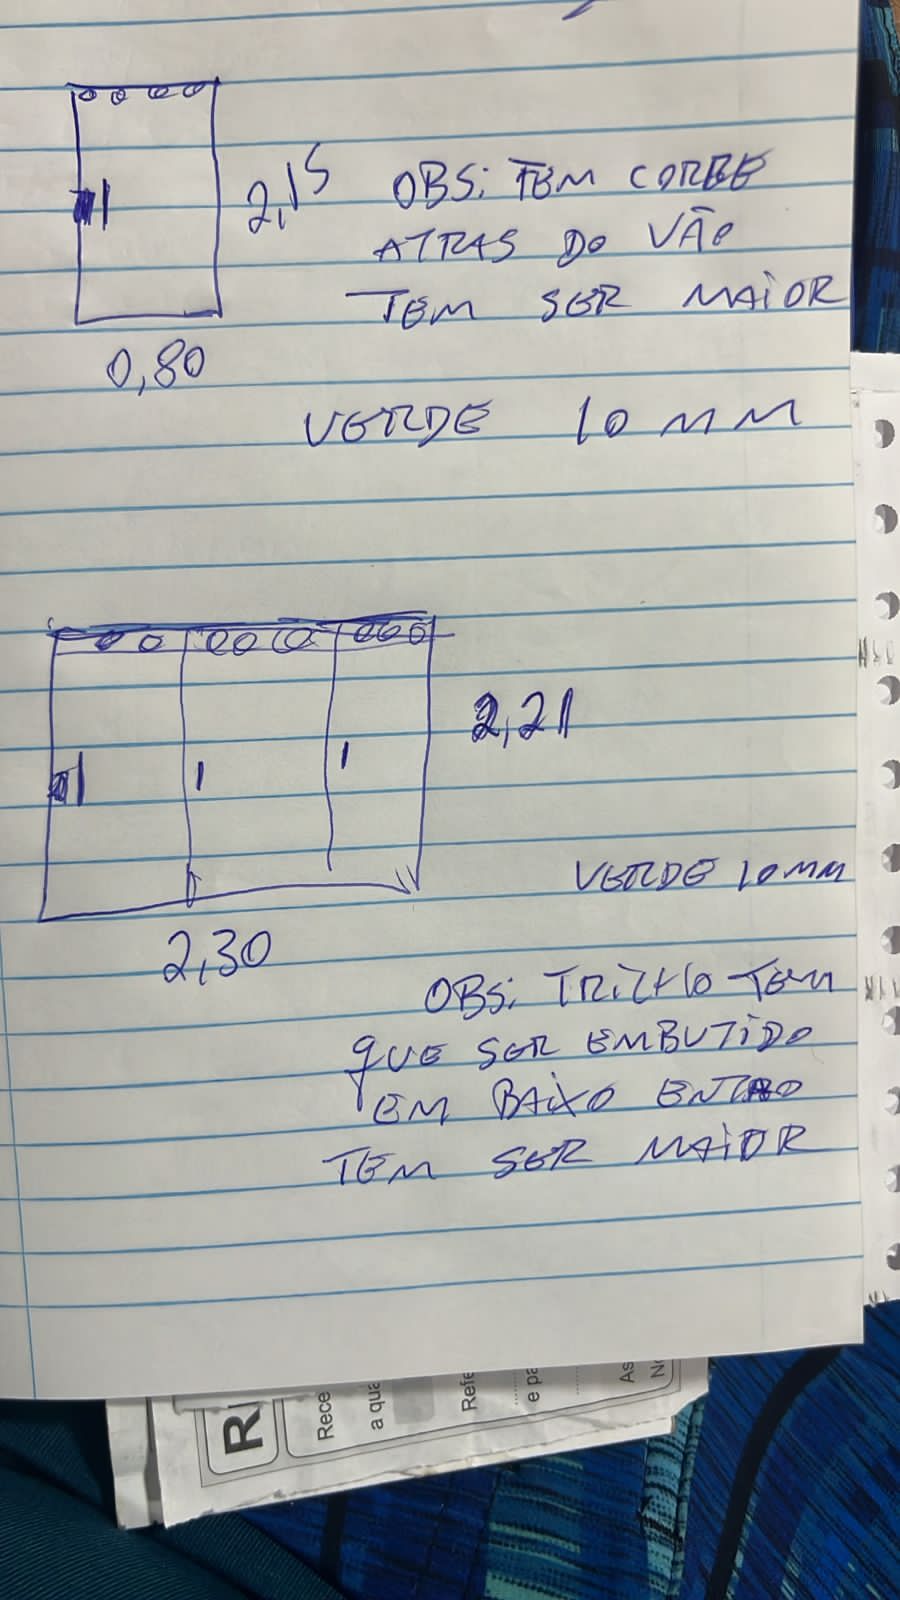 2,15
OBS: TEM CORRE
ATRAS DO VÃO
TEM SER MAIOR
0,80
VERDE 10 MM
2,21
VERDE 10 MM
2,30
OBS: TRILHO TEM
QUE SER EMBUTIDO
EM BAIXO ENTAO
TEM SER MAIOR
Rece
a qua
Refe
e pa
As